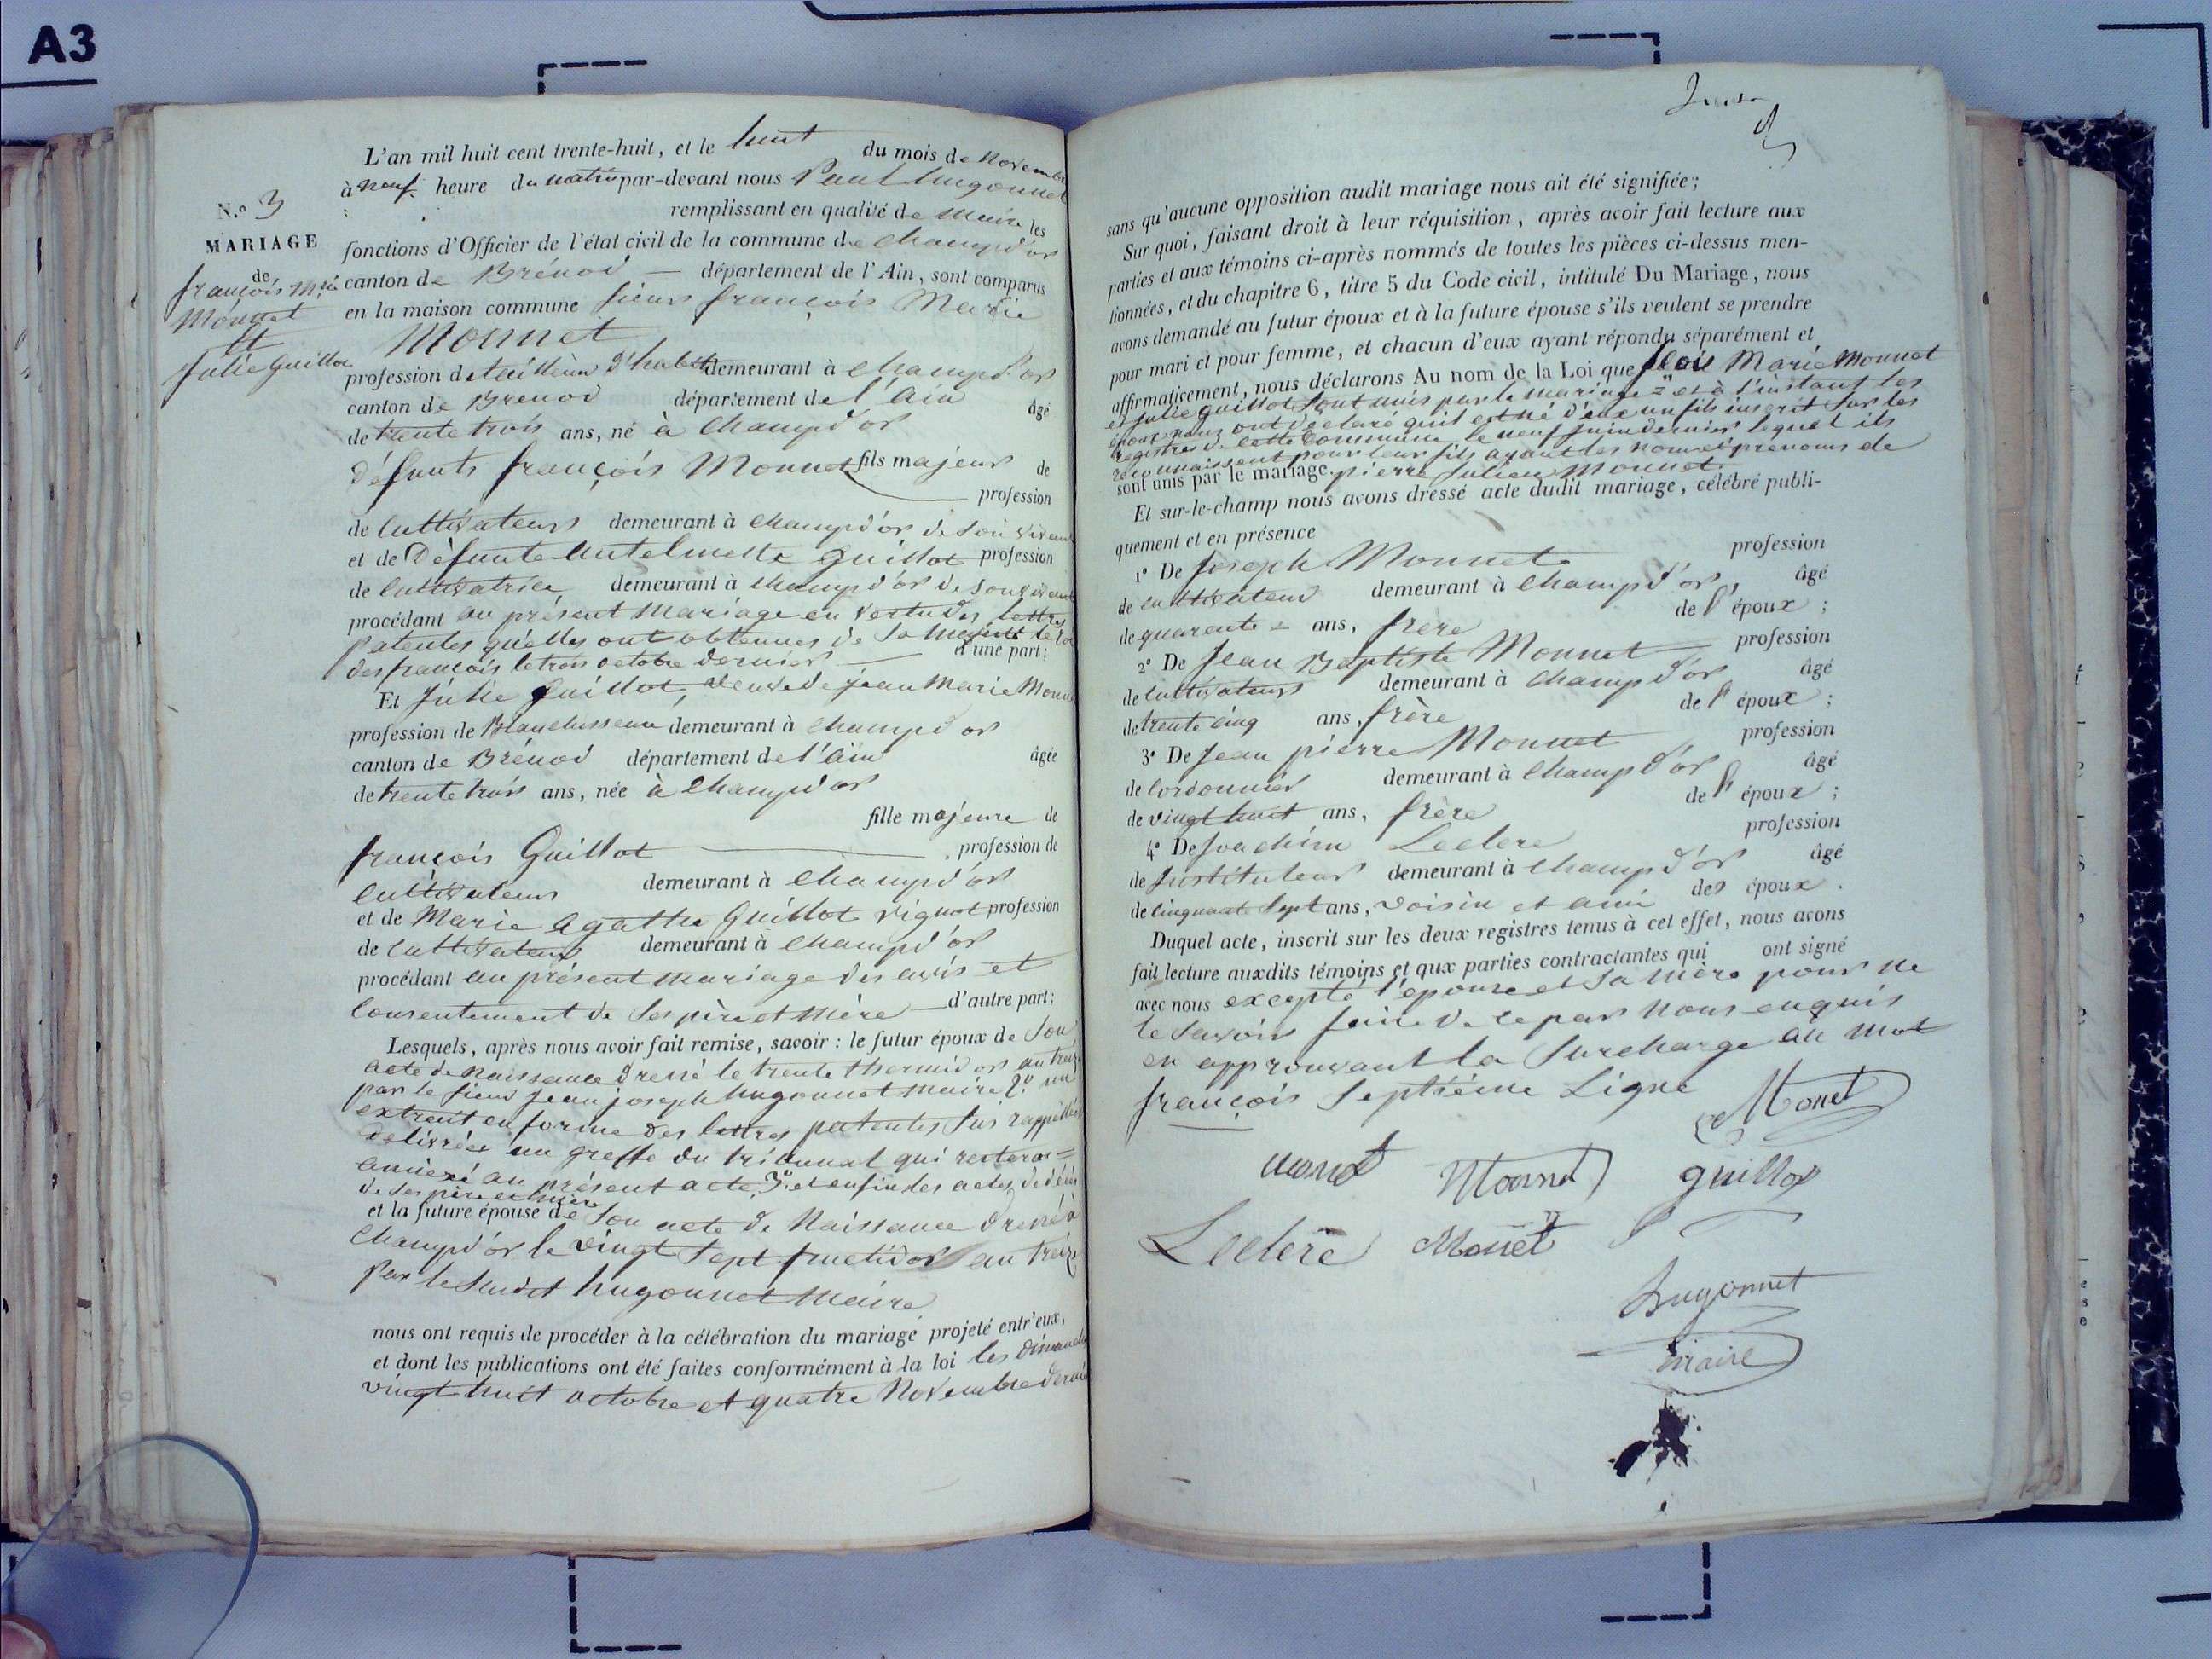 A3
L'an mil huit cent trente-huit, et le huit du mois de novembre
à neuf heure du matin par-devant nous Paul hugonnet
remplissant en qualité de maire les
fonctions d'Officier de l'état civil de la commune de Champd'or
canton de Brénod — département de l'Ain, sont comparus
en la maison commune sieur françois Marie
Monnet
N.o 3
MARIAGE
de
françois M.ie
Monnet
et
Julie Guillot
profession de tailleur d'habits demeurant à Champd'or
canton de Brenod département de l'Ain âgé
de trente trois ans, né à Champd'or
défunts françois Monnet fils majeur de
profession
de Cultivateur demeurant à Champd'or de son vivant
et de Défunte Antelmette Guillot profession
de Cultivatrice demeurant à Champd'or de son vivant
procédant au présent mariage en vertu des lettres
patentes qu'elles ont obtenues de sa Majesté le roi
des françois le trois octobre dernier — d'une part;
Et Julie Guillot, veuve de jean Marie Monnet
profession de Blanchisseuse demeurant à Champd'or
canton de Brénod département de l'Ain âgée
de trente trois ans, née à Champd'or
fille majeure de
françois Guillot — profession de
Cultivateur demeurant à Champd'or
et de Marie Agathe Guillot Vignot profession
de Cultivateur demeurant à Champd'or
procédant au présent mariage des avis et
Consentement de ses père et mère — d'autre part;
Lesquels, après nous avoir fait remise, savoir : le futur époux de Son
acte de Naissance dressé le trente thermidor an treize
par le sieur jean joseph hugonnet maire 2.o un
extrait en forme des lettres patentes sus rappellées
délivrées au greffe du tribunal qui restera =
annexé au présent acte, 3.o et enfin les actes de décès
de ses père et mère
et la future épouse de Son acte de Naissance dressé à
Champd'or le vingt sept fructidor an treize
par le susdit hugonnet maire
nous ont requis de procéder à la célébration du mariage projeté entr'eux,
et dont les publications ont été faites conformément à la loi les dimanches
vingt huit octobre et quatre Novembre dernier
sans qu'aucune opposition audit mariage nous ait été signifiée;
Sur quoi, faisant droit à leur réquisition, après avoir fait lecture aux
parties et aux témoins ci-après nommés de toutes les pièces ci-dessus men-
tionnées, et du chapitre 6, titre 5 du Code civil, intitulé Du Mariage, nous
avons demandé au futur époux et à la future épouse s'ils veulent se prendre
pour mari et pour femme, et chacun d'eux ayant répondu séparément et
affirmativement, nous déclarons Au nom de la Loi que Marie Monnet
et Julie Guillot sont unis par le mariage = et à l'instant les
époux nous ont déclaré qu'il est né d'eux un fils inscrit sur les
registres de cette Commune le neuf juin dernier lequel ils
reconnaissent pour leur fils ayant les nom et prenoms de
sont unis par le mariage. pierre Julien Monnet.
Et sur-le-champ nous avons dressé acte dudit mariage, célébré publi-
quement et en présence
1° De Joseph Monnet profession
de cultivateur demeurant à Champd'or, âgé
de quarente = ans, frère de l'époux ;
2° De Jean Baptiste Monnet profession
de Cultivateur demeurant à Champd'or âgé
de trente cinq ans, frère de l'époux ;
3° De Jean pierre Monnet profession
de Cordonnier demeurant à Champd'or âgé
de vingt huit ans, frère de l'époux ;
4° De Joachim Leclere profession
de Instituteur demeurant à Champd'or âgé
de Cinquante Sept ans, voisin et ami des époux.
Duquel acte, inscrit sur les deux registres tenus à cet effet, nous avons
fait lecture auxdits témoins et aux parties contractantes qui ont signé
avec nous excepté l'épouse et sa mère pour ne
le savoir faire de ce par nous enquis
en approuvant la surcharge au mot
françois Septième Ligne
Monet
Monet Monnet guillot
Leclere Monet
hugonnet
maire